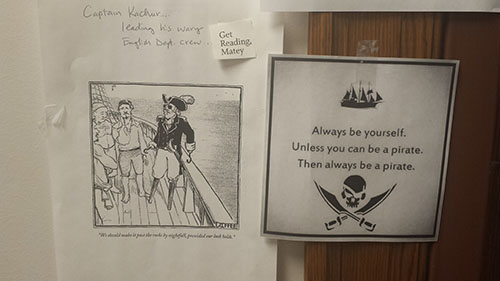 Captain Kachur...
leading his
English Dept. crew...
Get
Reading,
Matey
"We should make it past the rocks by nightfall, provided our luck holds."
Always be yourself.
Unless you can be a pirate.
Then always be a pirate.